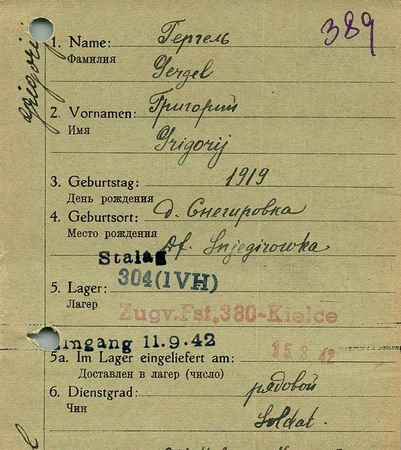 389
Grigorij
1. Name: Гергель
Фамилия
Gergel
2. Vornamen: Григорий
Имя
Grigorij
3. Geburtstag: 1919
День рождения
4. Geburtsort: д. Снегировка
Место рождения
Df. Snjegirowka
Stalag
5. Lager: 304(IVH)
Лагер
Zugv.Fst.380-Kielce
Eingang 11.9.42
5a. Im Lager eingeliefert am: 15.8.42
Доставлен в лагер (число)
6. Dienstgrad: рядовой
Чин
Soldat.